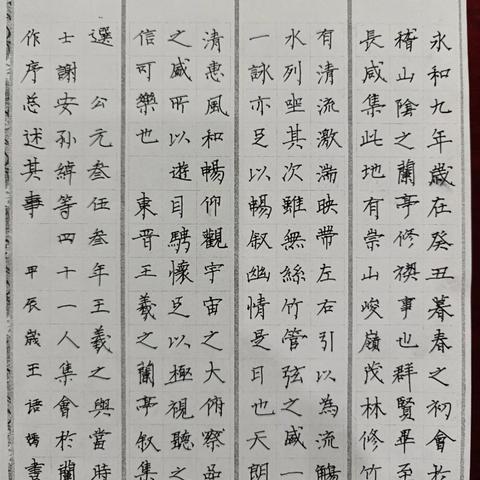 永和九年歲在癸丑暮春之初會於
稽山陰之蘭亭修禊事也群賢畢至
長咸集此地有崇山峻嶺茂林修竹
有清流激湍映帶左右引以為流觴
水列坐其次雖無絲竹管弦之盛一
一詠亦足以暢叙幽情是日也天朗
清惠風和暢仰觀宇宙之大俯察品
之盛所以遊目騁懷足以極視聽之
信可樂也 東晋王羲之蘭亭叙集
選 公元叁伍叁年王羲之與當時
士謝安孫綽等四十一人集會於蘭
作序总述其事 甲辰歲王語嫣書